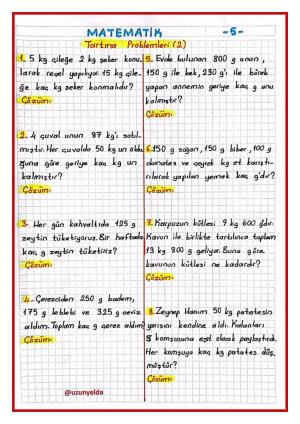 MATEMATİK -5-
Tartma Problemleri (2)
1- 5 kg çileğe 2 kg şeker konu
larak reçel yapılıyor. 15 kg çile
ğe kaç kg şeker konmalıdır?
Çözüm:
2- 4 çuval unun 87 kg'ı satıl
mıştır. Her çuvalda 50 kg un oldu
ğuna göre geriye kaç kg un
kalmıştır?
Çözüm:
3- Her gün kahvaltıda 125 g
zeytin tüketiyoruz. Bir haftada
kaç g zeytin tüketiriz?
Çözüm:
4- Çerezciden 250 g badem,
175 g leblebi ve 325 g ceviz
aldım. Toplam kaç g çerez aldım?
Çözüm:
5- Evde bulunan 800 g unun,
150 g ile kek, 230 g'ı ile börek
yapan annemin geriye kaç g unu
kalmıştır?
Çözüm:
6- 150 g soğan, 150 g biber, 100 g
domates ve çeyrek kg et karıştı
rılarak yapılan yemek kaç g'dır?
Çözüm:
7- Karpuzun kütlesi 9 kg 600 g'dır.
Kavun ile birlikte tartılınca toplam
13 kg 800 g geliyor. Buna göre
kavunun kütlesi ne kadardır?
Çözüm:
8- Zeynep Hanım 50 kg patatesin
yarısını kendine aldı. Kalanları
5 komşusuna eşit olarak paylaştırdı.
Her komşuya kaç kg patates düş
müştür?
Çözüm:
@uzunyelda